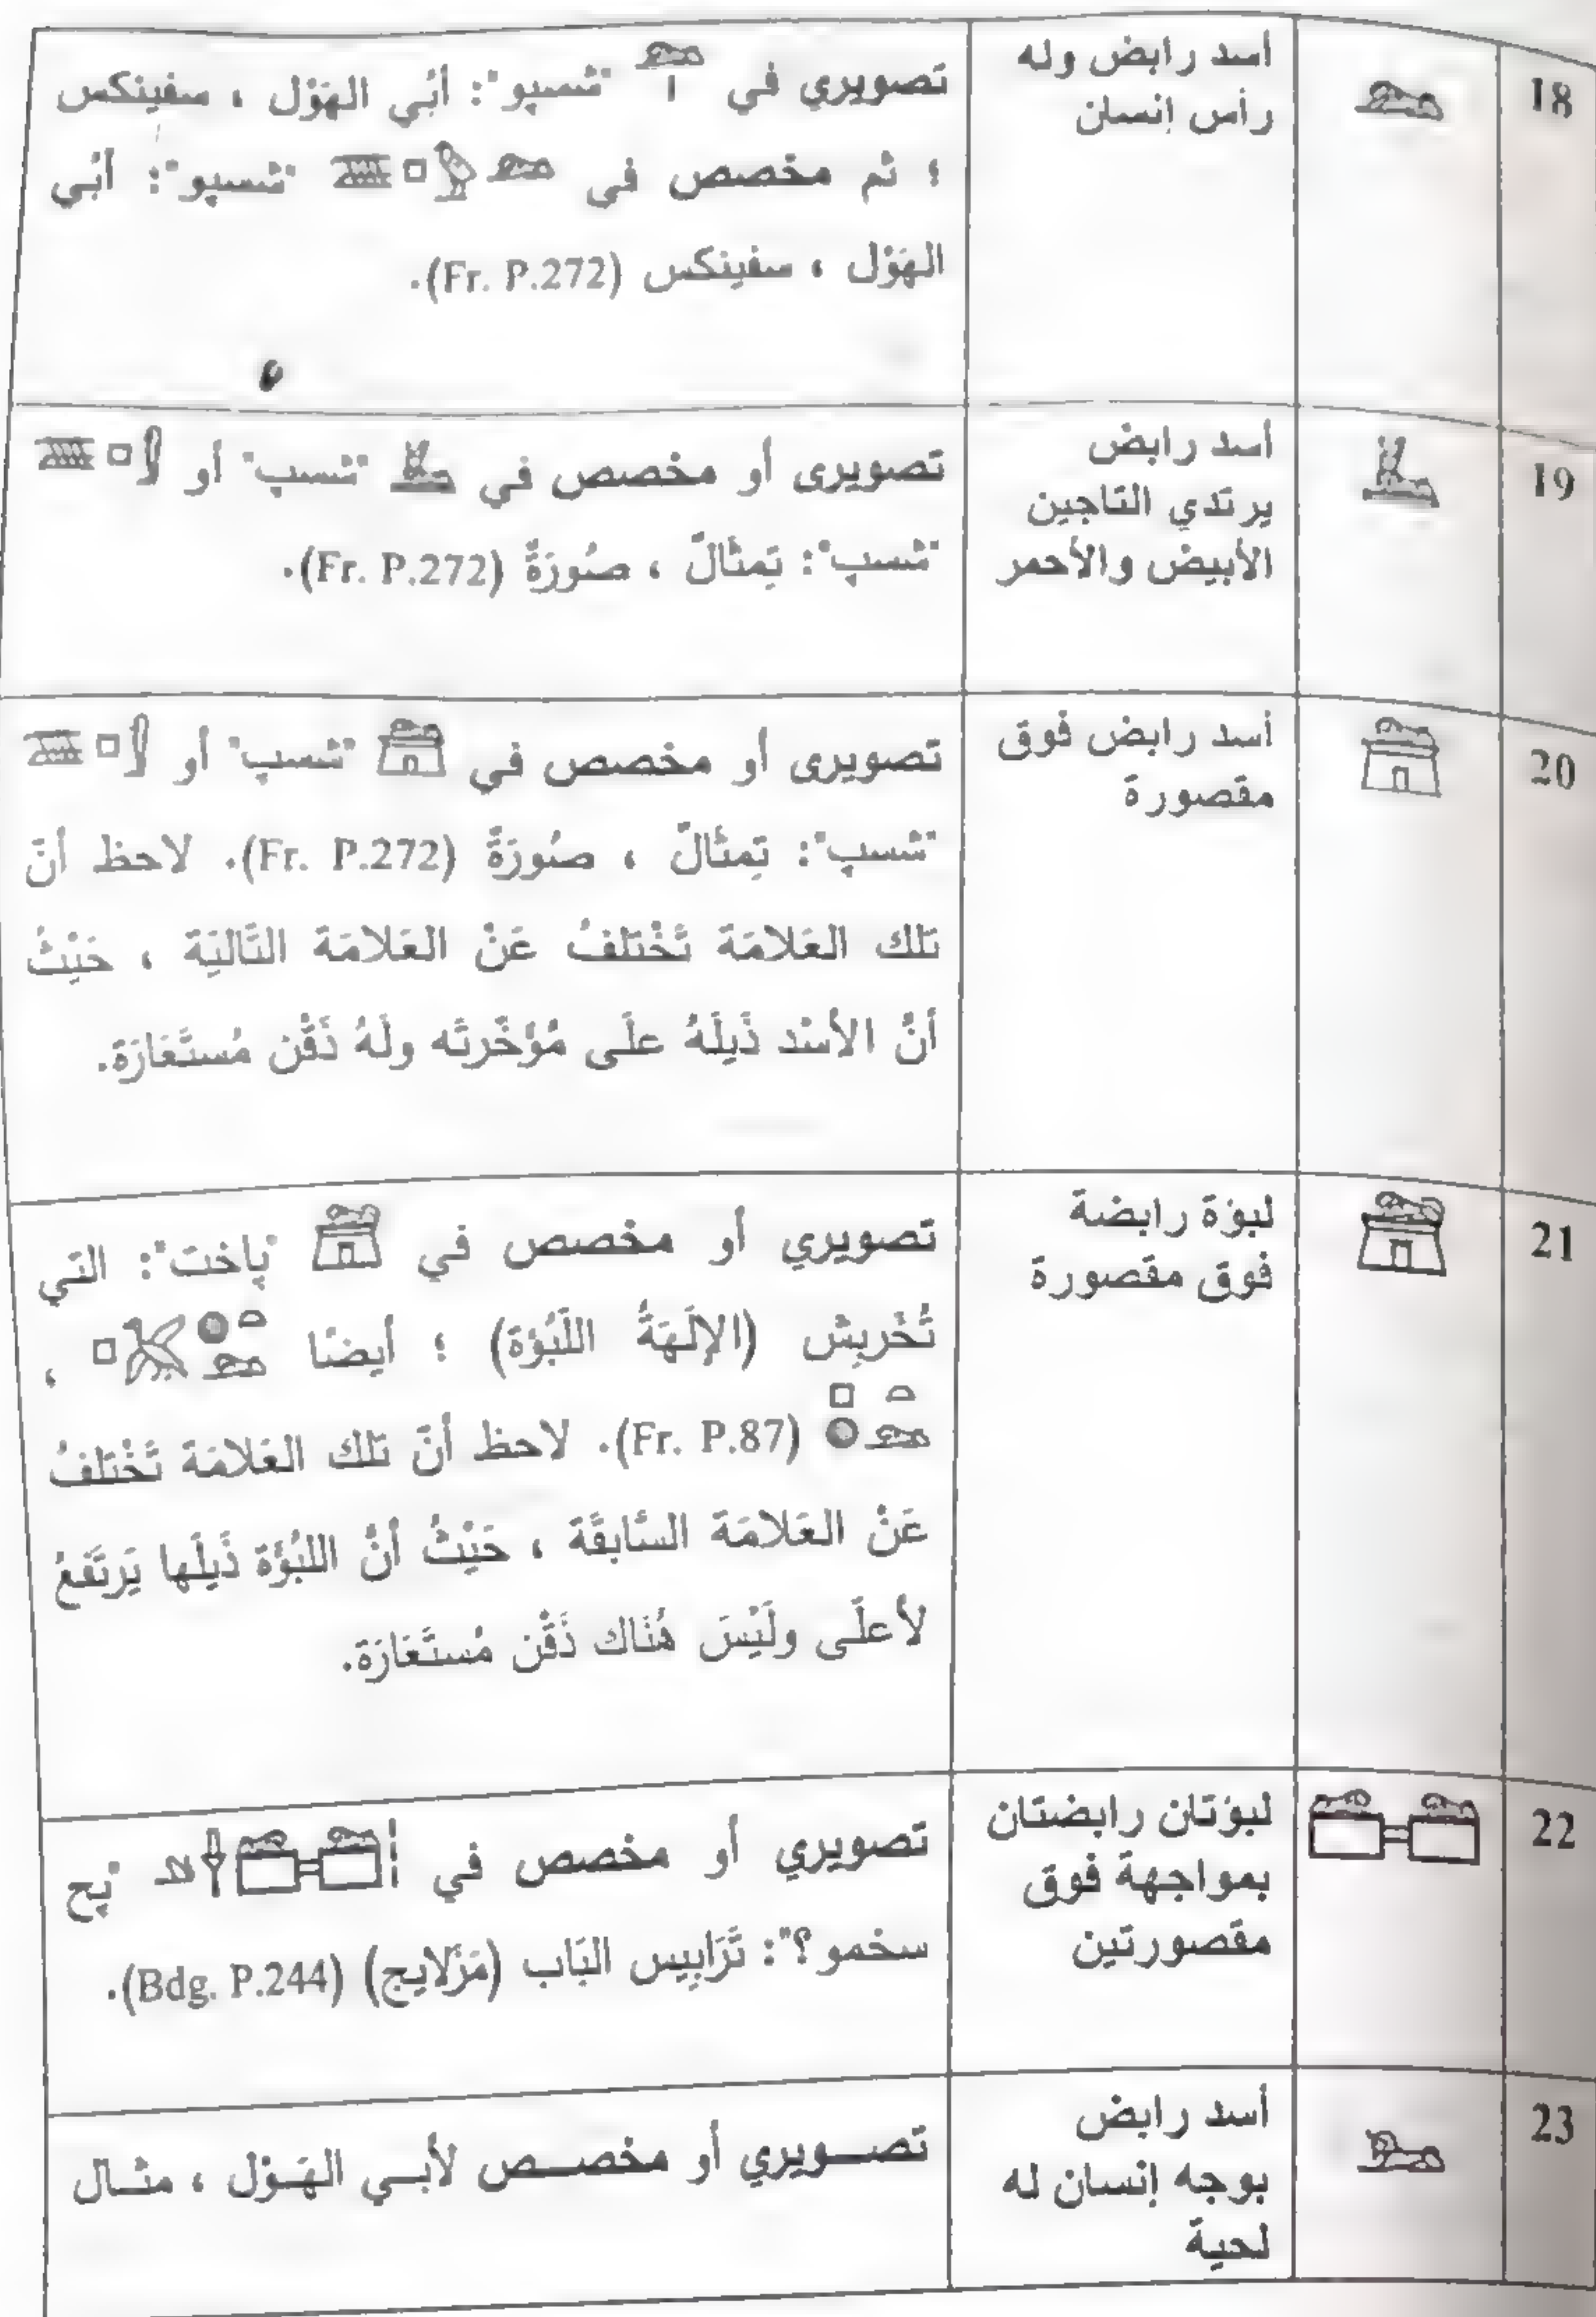 18
أسد رابض وله
رأس إنسان
تصويري في "شسپو": أبي الهَوْل ، سفينكس
؛ ثم مخصص في "شسپو": أبي
الهَوْل ، سفينكس (Fr. P.272).
19
أسد رابض
يرتدي التاجين
الأبيض والأحمر
تصويرى أو مخصص في "شسپ" أو
"شسپ": تِمثَالٌ ، صُورَةٌ (Fr. P.272).
20
أسد رابض فوق
مقصورة
تصويرى أو مخصص في "شسپ" أو
"شسپ": تِمثَالٌ ، صُورَةٌ (Fr. P.272). لاحظ أنَّ
تلك العَلامَة تَخْتَلفُ عَنْ العَلامَة التَّاليَة ، حَيْثُ
أنَّ الأسْد ذَيلَهُ علَى مُؤخَّرتَه ولَهُ ذَقْن مُستَعَارَة.
21
لبؤة رابضة
فوق مقصورة
تصويري أو مخصص في "پاخت": التي
تُخَربِش (الإلَهَةُ اللَّبُؤة) ؛ أيضًا ،
(Fr. P.87). لاحظ أنَّ تلك العَلامَة تَخْتَلفُ
عَنْ العَلامَة السَّابقَة ، حَيْثُ أنَّ اللبُؤة ذَيلَها يَرتَفعُ
لأعلَى ولَيْسَ هُنَاك ذَقْن مُستَعَارَة.
22
لبؤتان رابضتان
بمواجهة فوق
مقصورتين
تصويري أو مخصص في "پح
سخمو؟": تَرَابِيس البَاب (مَزَلايج) (Bdg. P.244).
23
أسد رابض
بوجه إنسان له
لحية
تصـويري أو مخصـص لأبـي الهَـوْل ، مثـال